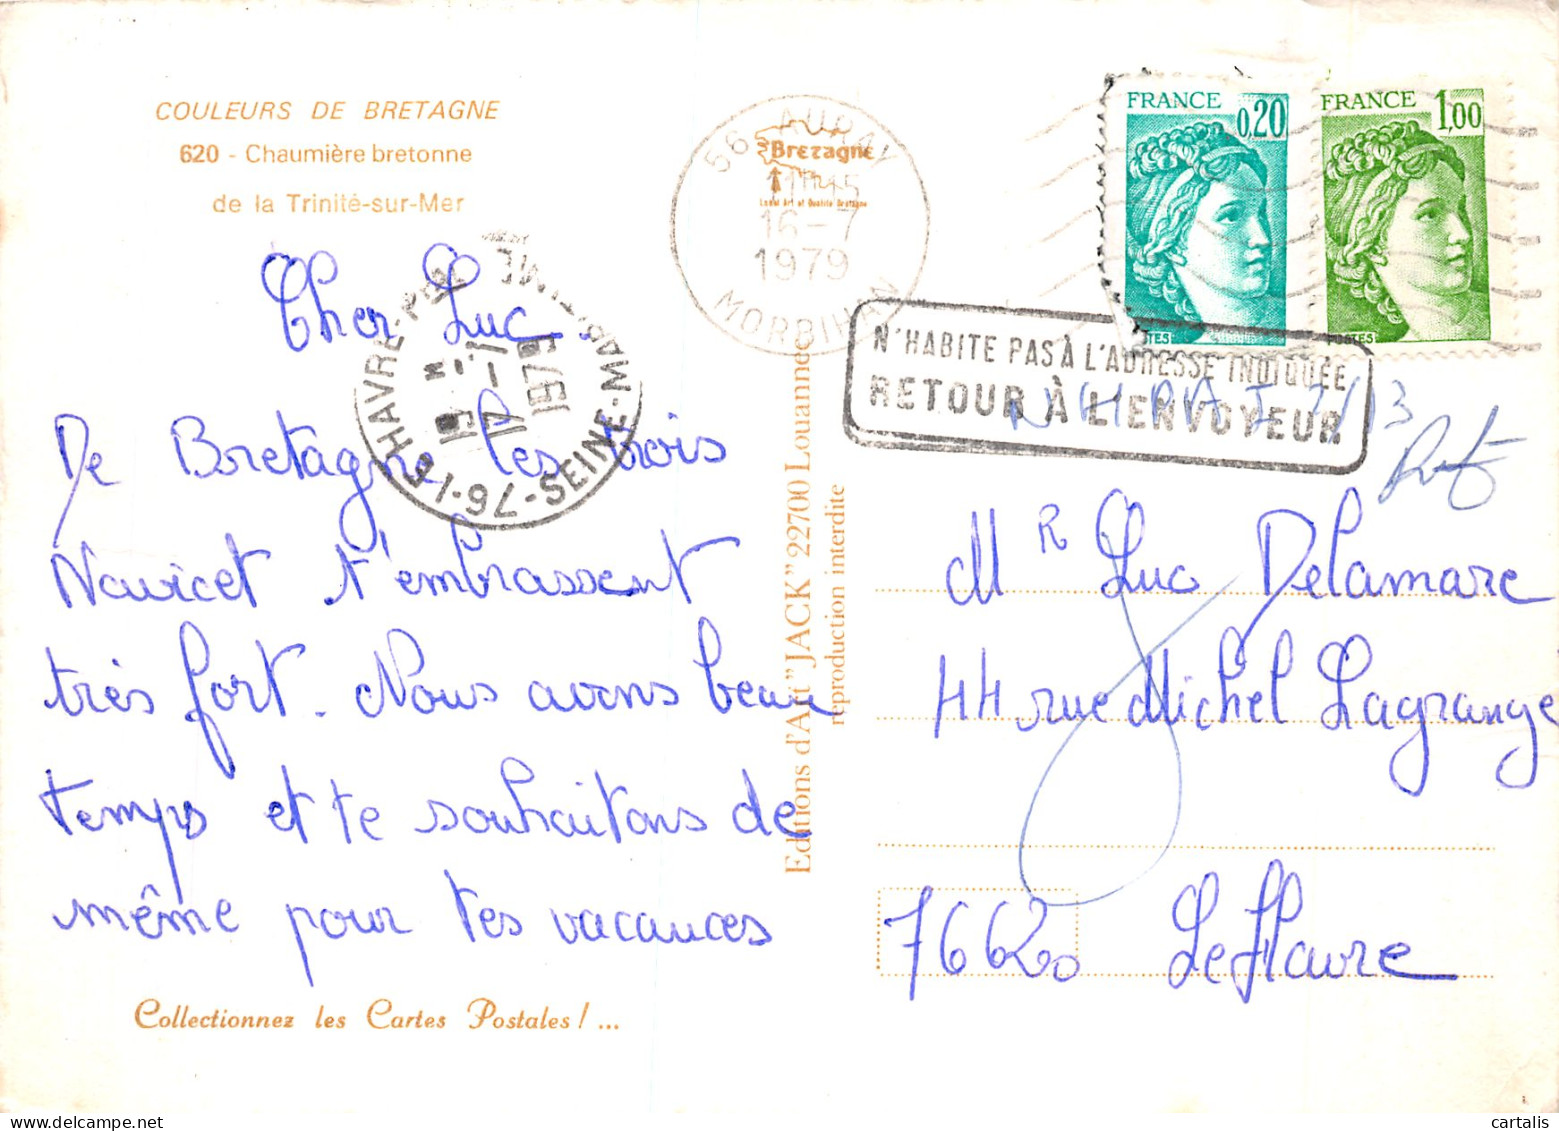 COULEURS DE BRETAGNE
620 - Chaumière bretonne
de la Trinité-sur-Mer
Cher Luc
De Bretagne les trois
Navicet t'embrassent
très fort. Nous avons beau
temps et te souhaitons de
même pour tes vacances
Collectionnez les Cartes Postales ! ...
HAVRE-
76-SEINE-MARITIME
17-7
1979
Editions d'Art "JACK" 22700 Louannec
reproduction interdite
56 AURAY
16-7
1979
MORBIHAN
Bretagne
Label Art et Qualité Bretagne
FRANCE
0,20
FRANCE
1,00
N'HABITE PAS À L'ADRESSE INDIQUÉE
RETOUR À L'ENVOYEUR
NHPAI
Mr Luc Delamare
44 rue Michel Lagrange
76620 Le Havre
www.cartalis.com
cartalis